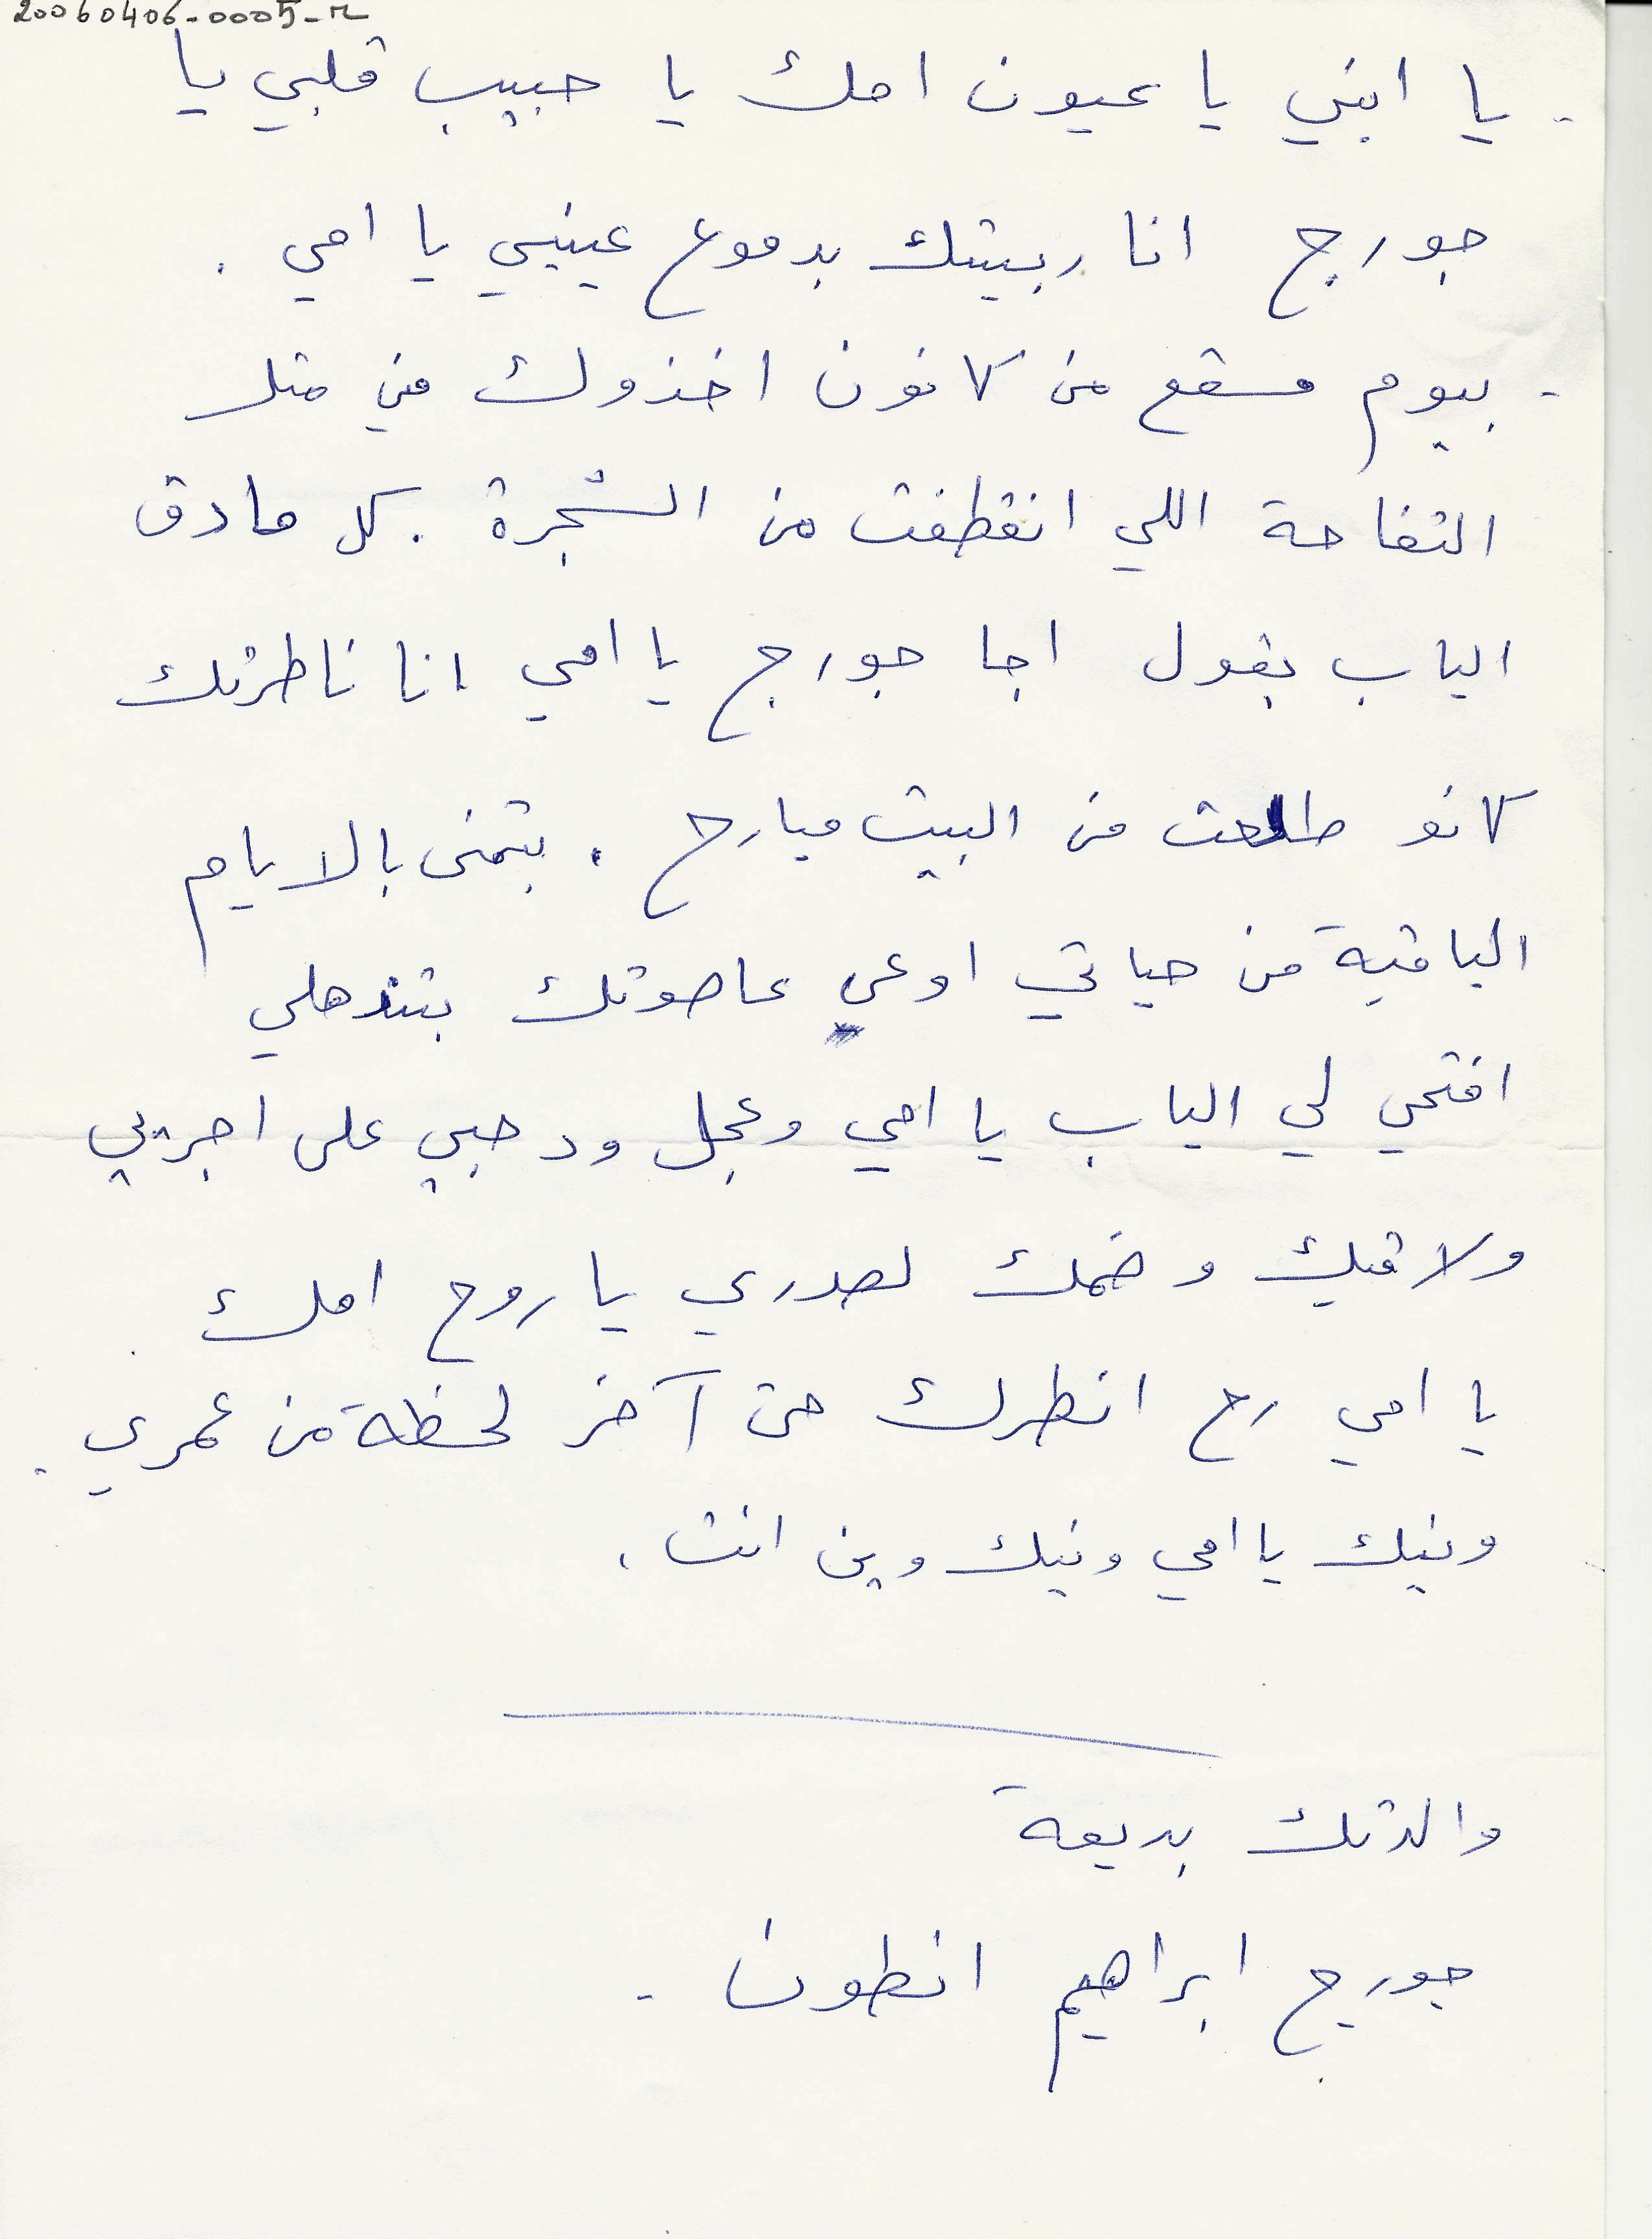 20060406-0005-r
- يا ابني يا عيون امك يا حبيب قلبي يا
جورج انا ربيتك بدموع عينيي يا امي .
- بيوم مسقع من كانون اخذوك مني متل
التفاحة اللي انقطفت من الشجرة . كل ما دق
الباب بقول اجا جورج يا امي انا ناطرتك
كانو طلعت من البيت مبارح . بتمنى بالايام
الباقية من حياتي اوعى عا صوتك بتندهلي
افتحي لي الباب يا امي وعجل ودحبي على اجريي
ولاقيك وضمك لصدري يا روح امك
يا امي رح انطرك حتى آخر لحظة من عمري .
وينك يا امي وينك وين انت .
والدتك بديعة
جورج ابراهيم انطون .